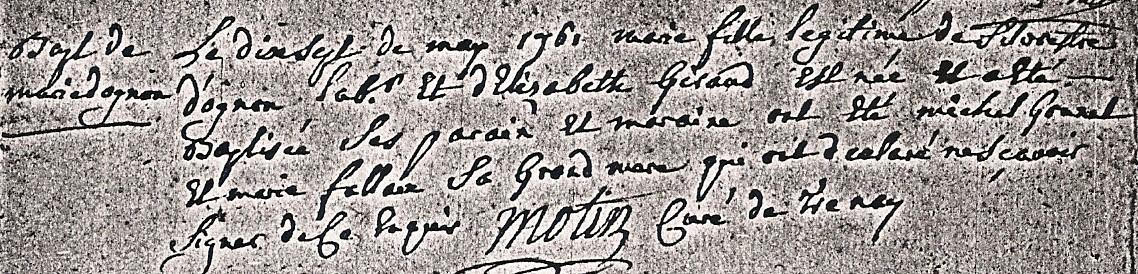 Bapt de Le dixsept de may 1761 marie fille legitime de Silvestre
marie dognon d'ognon lab.r Et d'Elizabeth Giraud Est née Et a Eté
Baptisée Ses parain Et maraine ont Eté michel Grunet
Et marie fallaix Sa Grand mere qui ont declaré ne Scavoir
Signer de Ce Enquis Motin Curé de Trenay